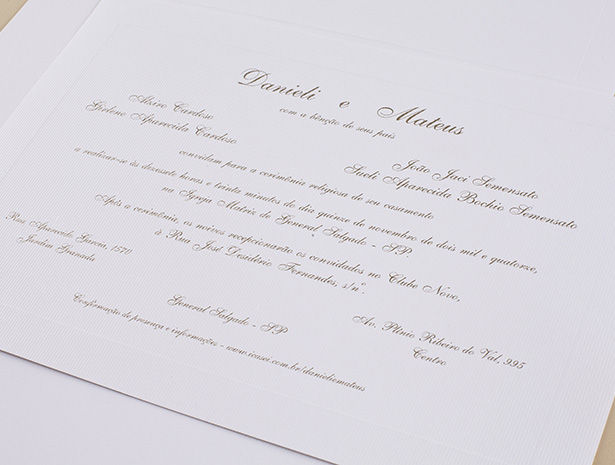 Danieli e Mateus
com a bênção de seus pais
Alziro Cardoso
Gislene Aparecida Cardoso
João Jaci Semensato
Sueli Aparecida Bochio Semensato
convidam para a cerimônia religiosa de seu casamento
a realizar-se às dezessete horas e trinta minutos do dia quinze de novembro de dois mil e quatorze,
na Igreja Matriz de General Salgado - SP.
Após a cerimônia, os noivos recepcionarão os convidados no Clube Novo,
à Rua José Desidério Fernandes, s/nº.
Rua Aparecido Garcia, 1570
Jardim Granada
Av. Plínio Ribeiro do Val, 995
Centro
General Salgado - SP
Confirmação de presença e informações - www.icasei.com.br/danieliemateus